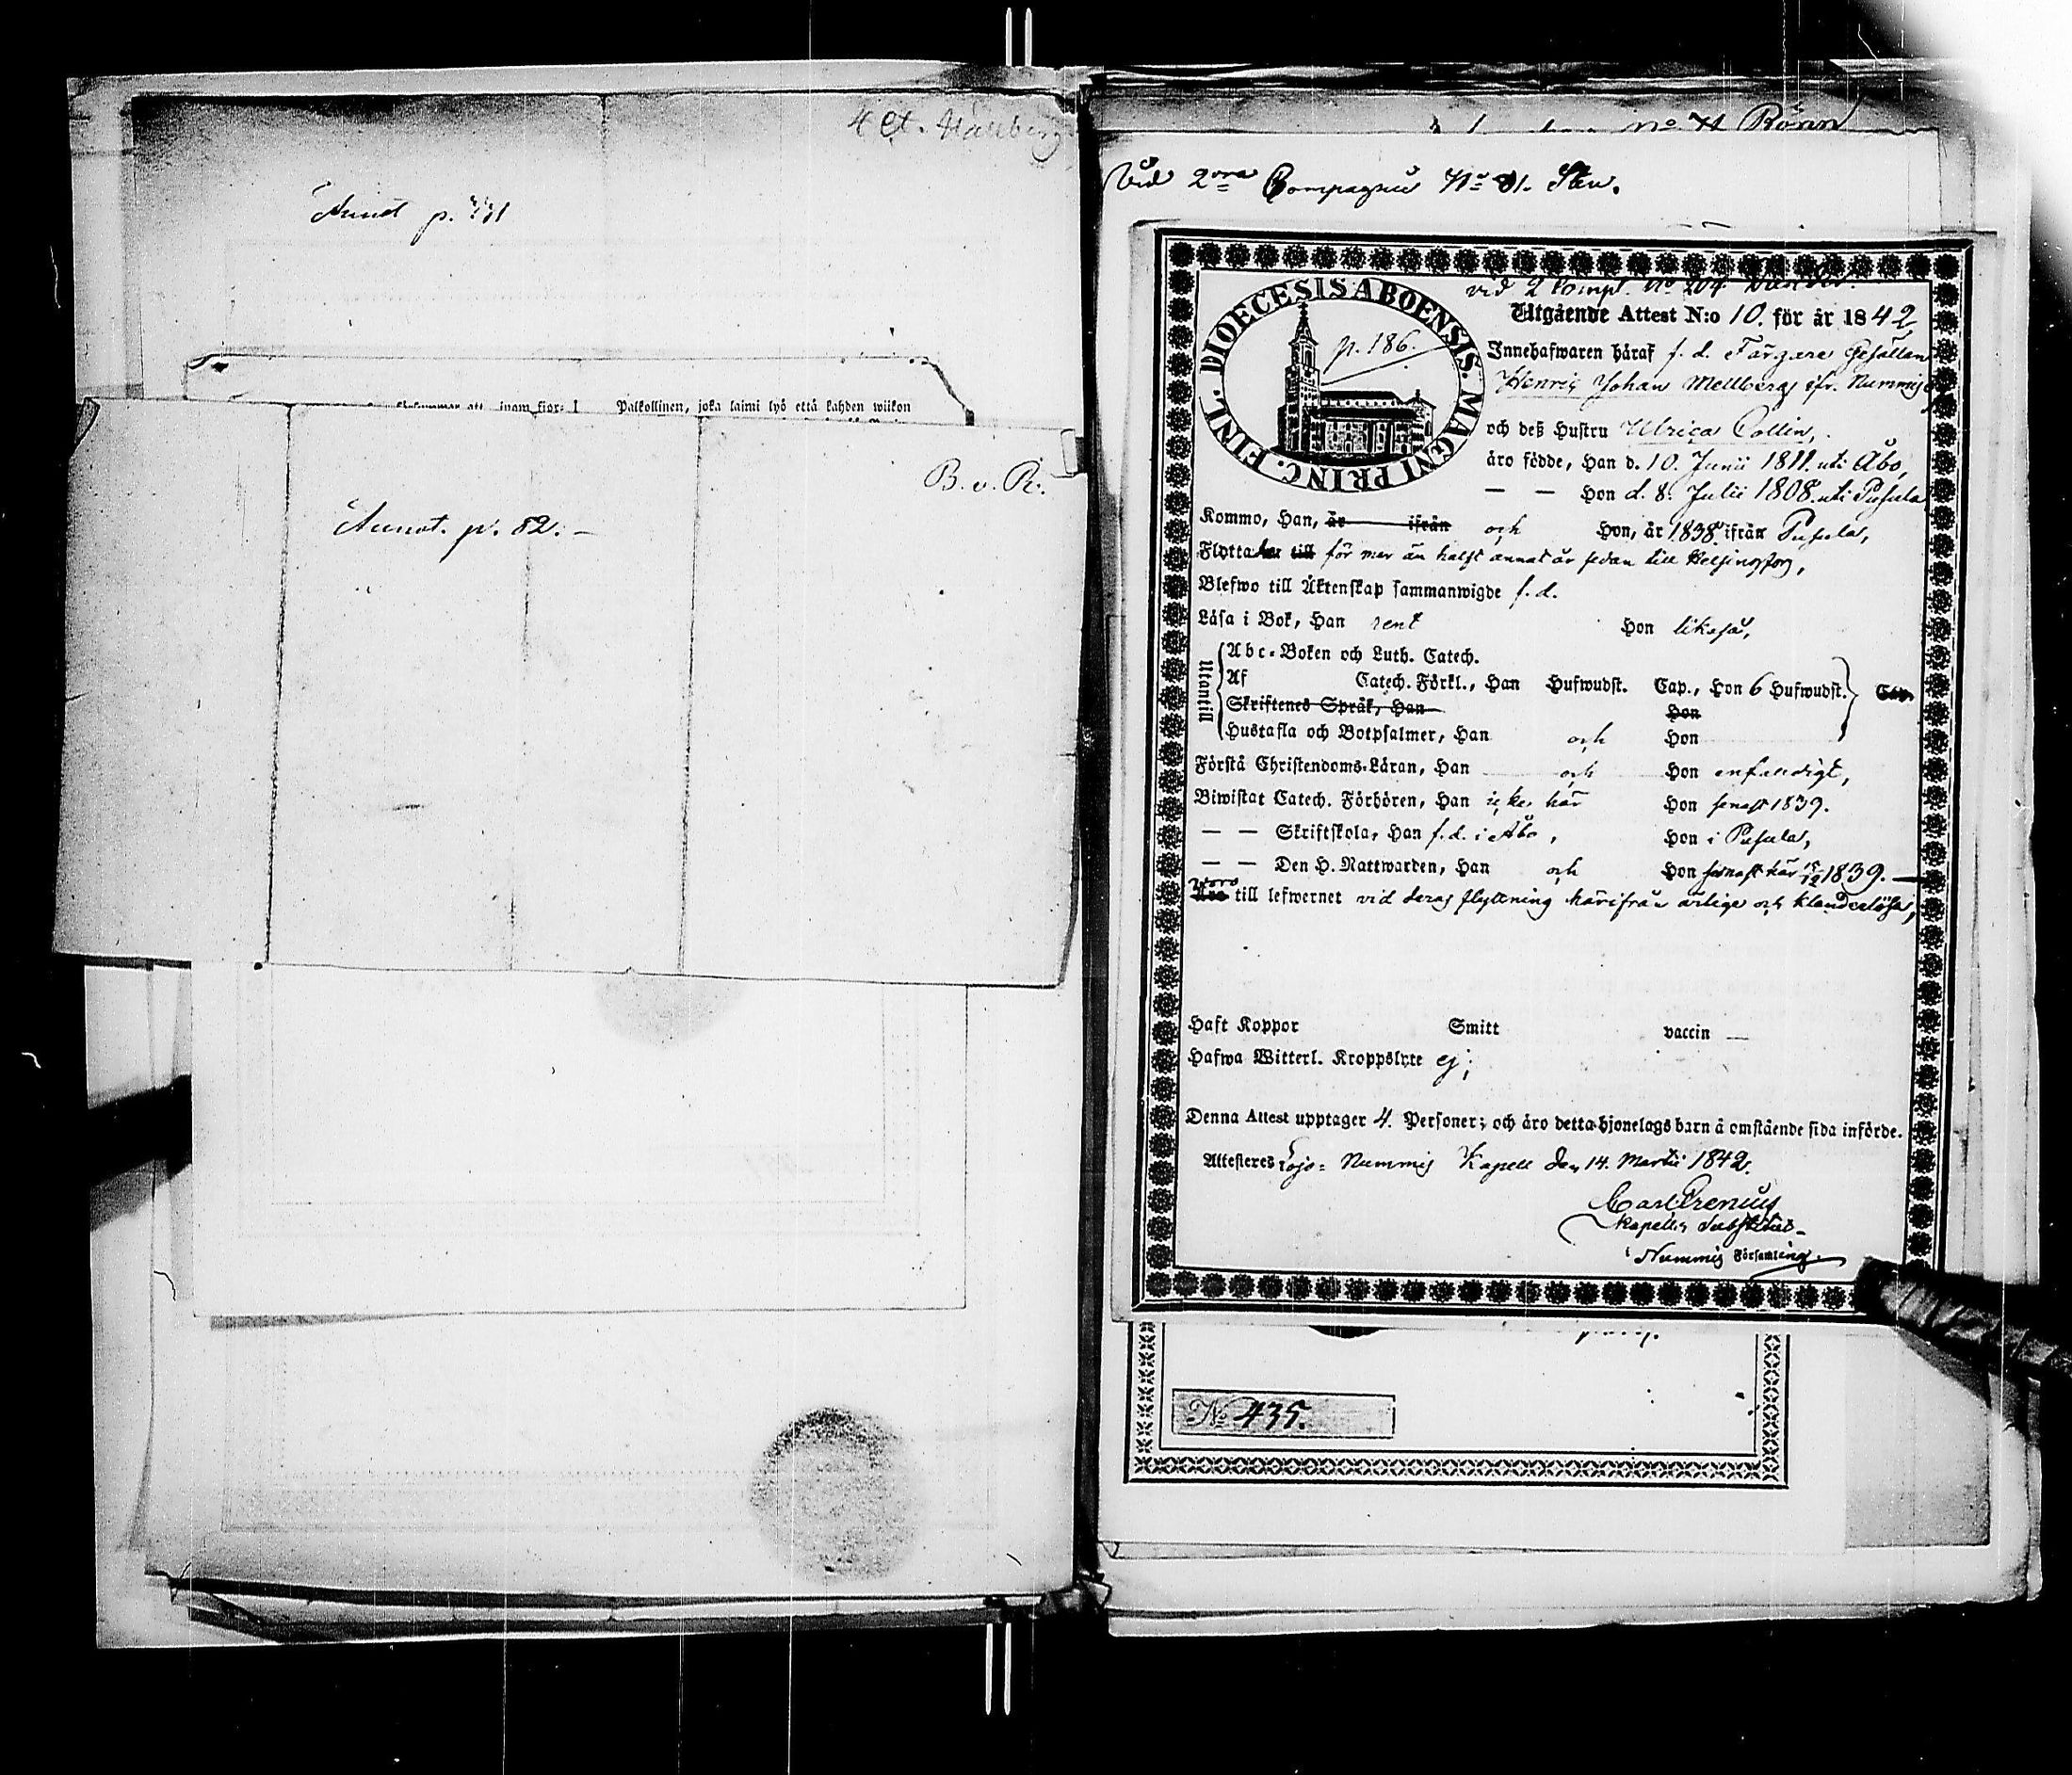 4 Ct. Mallberg
Annot p. 771
Palkollinen, joka laimi lyö että kahden wiikon
B. v. R.
Annot. p. 82. –
No 71 Rönn
Vid 2ora Compagniu No 81. Sten.
vid 2 Komp. No 204
FINL. DIOECESIS ABOENSIS. MAGNI PRINC.
p. 186.
Utgående Attest N:o 10. för år 1842
Innehafwaren häraf f. d. Färgare Gesällen
Henric Johan Mellberg ifr. Nummis
och deß Hustru Ulrica Collin,
äro födde, Han d. 10. Junii 1811. uti Åbo,
— — Hon d. 8. Julii 1808. uti Pusula
Kommo, Han, är ifrån och Hon, år 1838. ifrån Pusula,
Flyttade till för mer än halft annat år sedan till Helsingfors,
Blefwo till Äktenskap sammanwigde f. d.
Läsa i Bok, Han rent Hon likaså,
Utantill
Abc-Boken och Luth. Catech.
Af Catech. Förkl., Han Hufwudst. Cap., Hon 6 Hufwudst. Cap.
Skriftenes Språk, Han Hon
Hustafla och Botpsalmer, Han och Hon
Förstå Christendoms-Läran, Han och Hon enfaldigt,
Biwistat Catech. Förhören, Han icke här Hon senast 1839.
— — Skriftskola, Han f. d. i Åbo, Hon i Pusula,
— — Den H. Nattwarden, Han och Hon senast här 15/12 1839. —
Woro
Äro till lefwernet vid deras flyttning härifrån ärlige och klanderlösa,
Haft Koppor Smitt vaccin —
Hafwa Witterl. Kroppslyte ej;
Denna Attest upptager 4. Personer; och äro detta hjonelags barn å omstående sida införde.
Attesteres Lojo = Nummis Kapell den 14. Martii 1842.
Carl Prenius
Kapells Substitut
i Nummis Församling.
No 435.